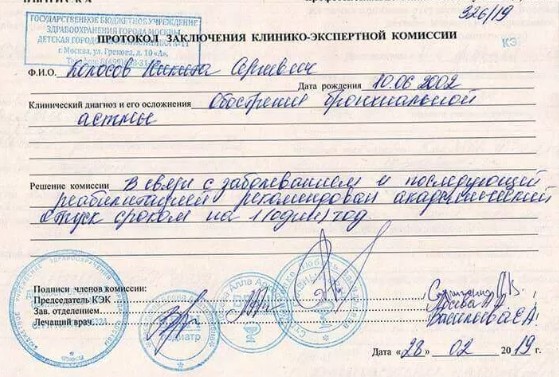 326/19
ГОСУДАРСТВЕННОЕ БЮДЖЕТНОЕ УЧРЕЖДЕНИЕ
ЗДРАВООХРАНЕНИЯ ГОРОДА МОСКВЫ
ПРОТОКОЛ ЗАКЛЮЧЕНИЯ КЛИНИКО-ЭКСПЕРТНОЙ КОМИССИИ
г. Москва, ул.
Ф.И.О. Колосов Никита Сергеевич
Дата рождения 10.06 2002
Клинический диагноз и его осложнения Обострения бронхиальной
астмы
Решение комиссии В связи с заболеванием и последующей
реабилитацией рекомендован академический
отпуск сроком на 1(один) год
Подписи членов комиссии:
Председатель КЭК
Зав. отделением.
Лечащий врач. Васильева Е.А.
Дата «28» 02 2019 г.